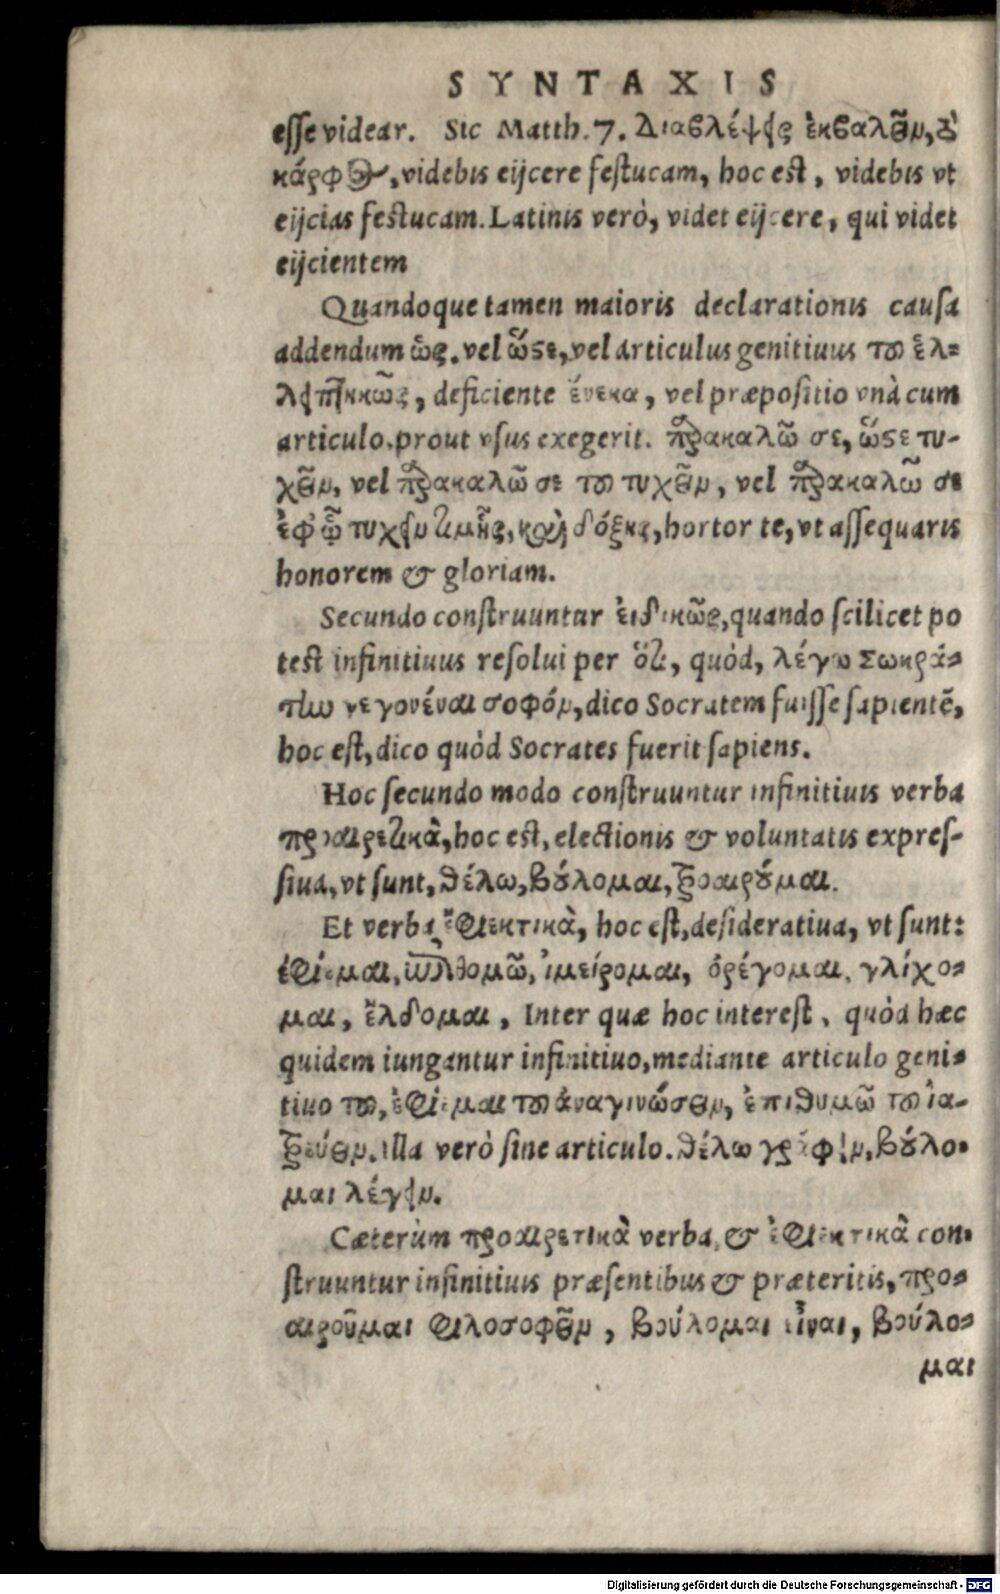 SYNTAXIS
esse videar. Sic Matth. 7. Διαβλέψεις ἐκβαλεῖν, τὸ
κάρφος, videbis eijcere festucam, hoc est, videbis vt
eijcias festucam. Latinis verò, videt eijcere, qui videt
eijcientem
Quandoque tamen maioris declarationis causa
addendum ὡς. vel ὥστε, vel articulus genitiuus τοῦ ἐλ-
λειπτικῶς, deficiente ἕνεκα, vel præpositio vnà cum
articulo. prout vsus exegerit. παρακαλῶ σε, ὥστε τυ-
χεῖν, vel παρακαλῶ σε τοῦ τυχεῖν, vel παρακαλῶ σε
ἐφ' ᾧ τυχεῖν τιμῆς, καὶ δόξης, hortor te, vt assequaris
honorem & gloriam.
Secundo construuntur εἰδικῶς, quando scilicet po
test infinitiuus resolui per ὅτι, quòd, λέγω Σωκρά-
την γεγονέναι σοφόν, dico Socratem fuisse sapientē,
hoc est, dico quòd Socrates fuerit sapiens.
Hoc secundo modo construuntur infinitiuis verba
προαιρετικὰ, hoc est, electionis & voluntatis expres-
siua, vt sunt, θέλω, βούλομαι, προαιροῦμαι.
Et verba ἐφιεκτικὰ, hoc est, desideratiua, vt sunt:
ἐφίεμαι, ἐπιθυμῶ, ἱμείρομαι, ὀρέγομαι, γλίχο-
μαι, ἔλδομαι, Inter quæ hoc interest, quòd hæc
quidem iungantur infinitiuo, mediante articulo geni-
tiuo τοῦ, ἐφίεμαι τοῦ ἀναγινώσκειν, ἐπιθυμῶ τοῦ ἰα-
τρεύειν. illa verò sine articulo. θέλω γράφειν, βούλο-
μαι λέγειν.
Cæterùm προαιρετικὰ verba, & ἐφιεκτικὰ con-
struuntur infinitiuis præsentibus & præteritis, προ-
αιροῦμαι φιλοσοφεῖν, βούλομαι εἶναι, βούλο-
μαι
Digitalisierung gefördert durch die Deutsche Forschungsgemeinschaft - DFG